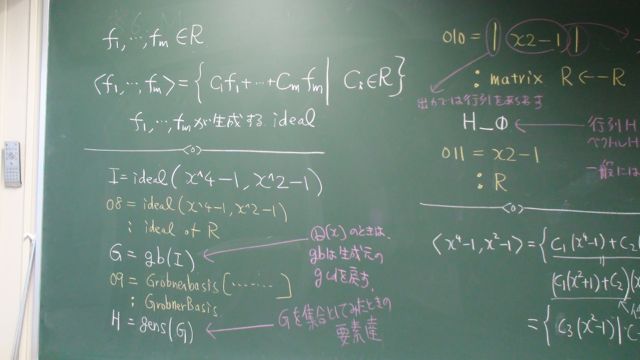 f₁,…,fₘ ∈ R
⟨f₁,…,fₘ⟩ = { C₁f₁+…+Cₘfₘ | Cᵢ∈R }
f₁,…,fₘ が生成する ideal
I = ideal(x^4-1, x^2-1)
o8 = ideal(x^4-1, x^2-1)
: ideal of R
G = gb(I)
o9 = Grobnerbasis[……]
: GrobnerBasis
H = gens(G)
(x)のときは、
gbは生成元の
gcdを戻す.
Gを集合としてみたときの
要素達
o10 = | x2-1 |
: matrix R ← R
出力では行列をあらわす
H_0
行列H
ベクトルH
o11 = x2-1
: R
一般には
⟨x⁴-1, x²-1⟩ = { C₁(x⁴-1)+C₂(
(C₁(x²+1)+C₂)(x
= { C₃(x²-1) |